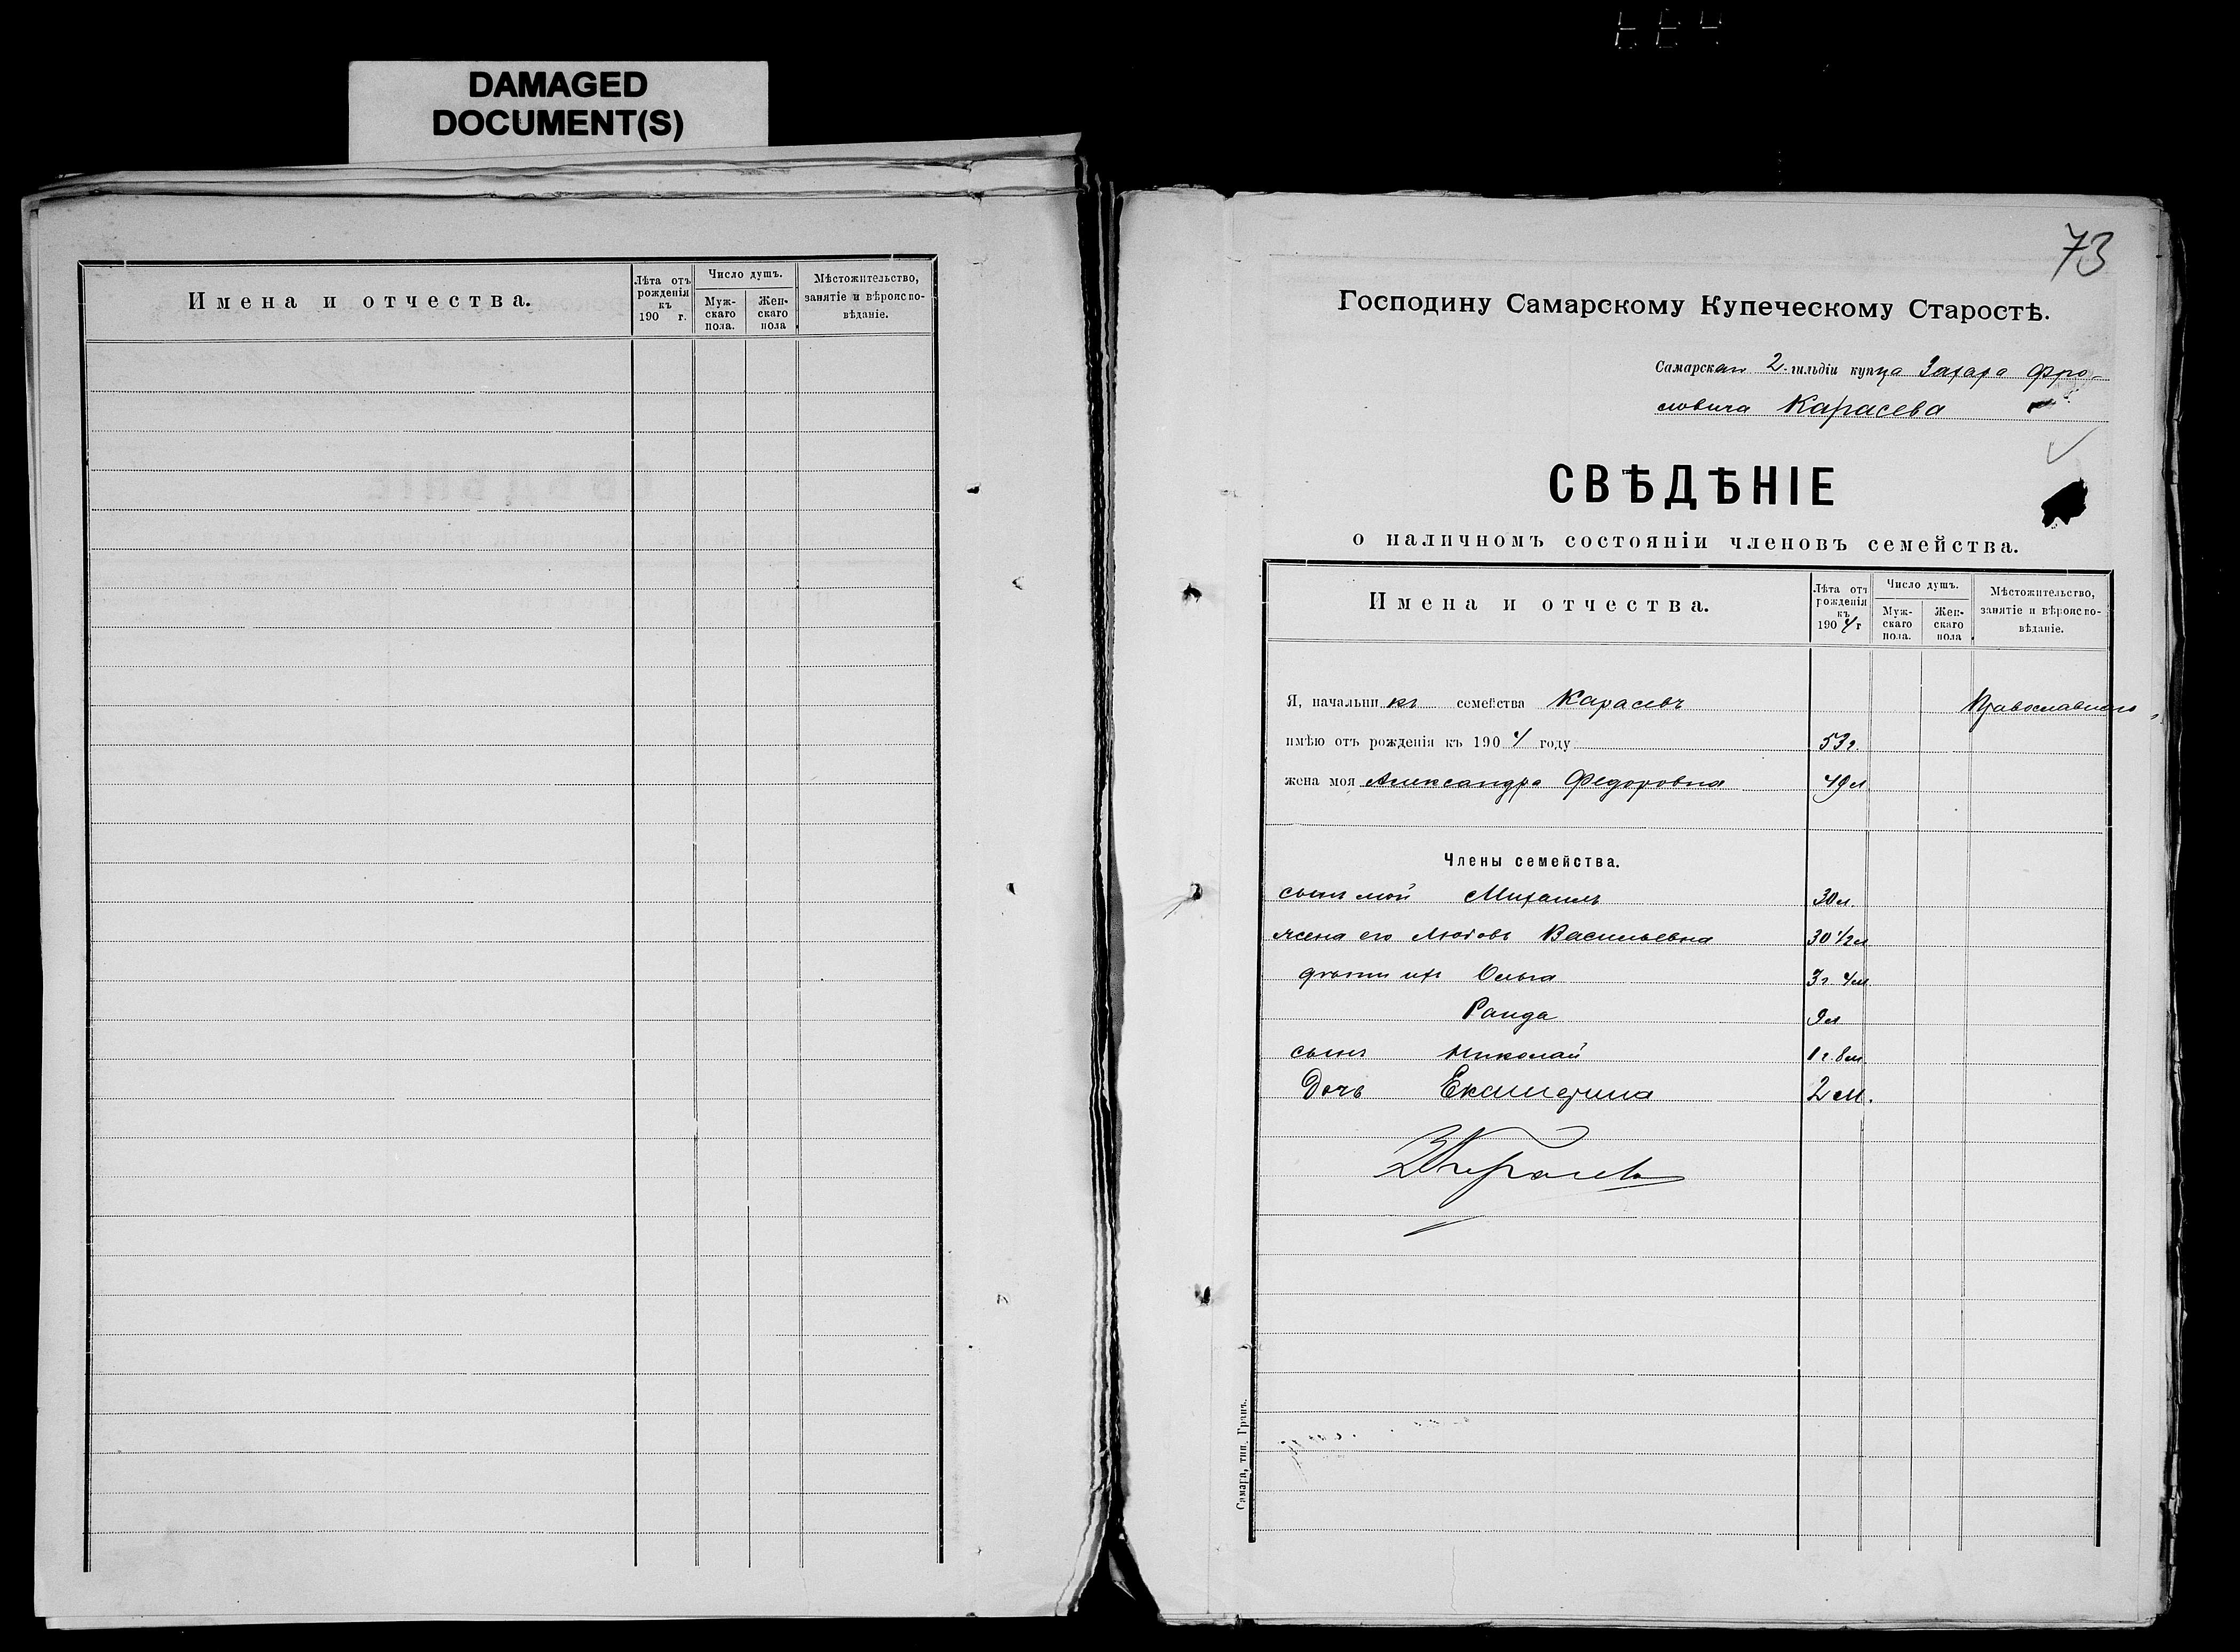 DAMAGED
DOCUMENT(S)
Имена и отчества.
Лѣта отъ рожденія къ 190 г.
Число душъ.
Мужскаго пола.
Женскаго пола
Мѣстожительство, занятіе и вѣроисповѣданіе.
73
Господину Самарскому Купеческому Старостѣ.
Самарскаго 2 гильдіи купца Захара Фро-
ловича Карасева
СВѢДѢНІЕ
о наличномъ состояніи членовъ семейства.
Имена и отчества.
Лѣта отъ рожденія къ 1904 г
Число душъ.
Мужскаго пола.
Женскаго пола
Мѣстожительство, занятіе и вѣроисповѣданіе.
Я, начальникъ семейства Карасевъ Православнаго
имѣю отъ рожденія къ 1904 году 53 г.
жена моя Александра Федоровна 49 л
Члены семейства.
сынъ мой Михаилъ 30 л.
жена его Любовь Васильевна 30 1/2 л
дѣти ихъ Ольга 3 г. 4 м
Раида
сынъ Николай 1 г. 8 м.
Дочь Екатерина 2 м.
ЗКарасевъ
Самара, тип. Гранъ.